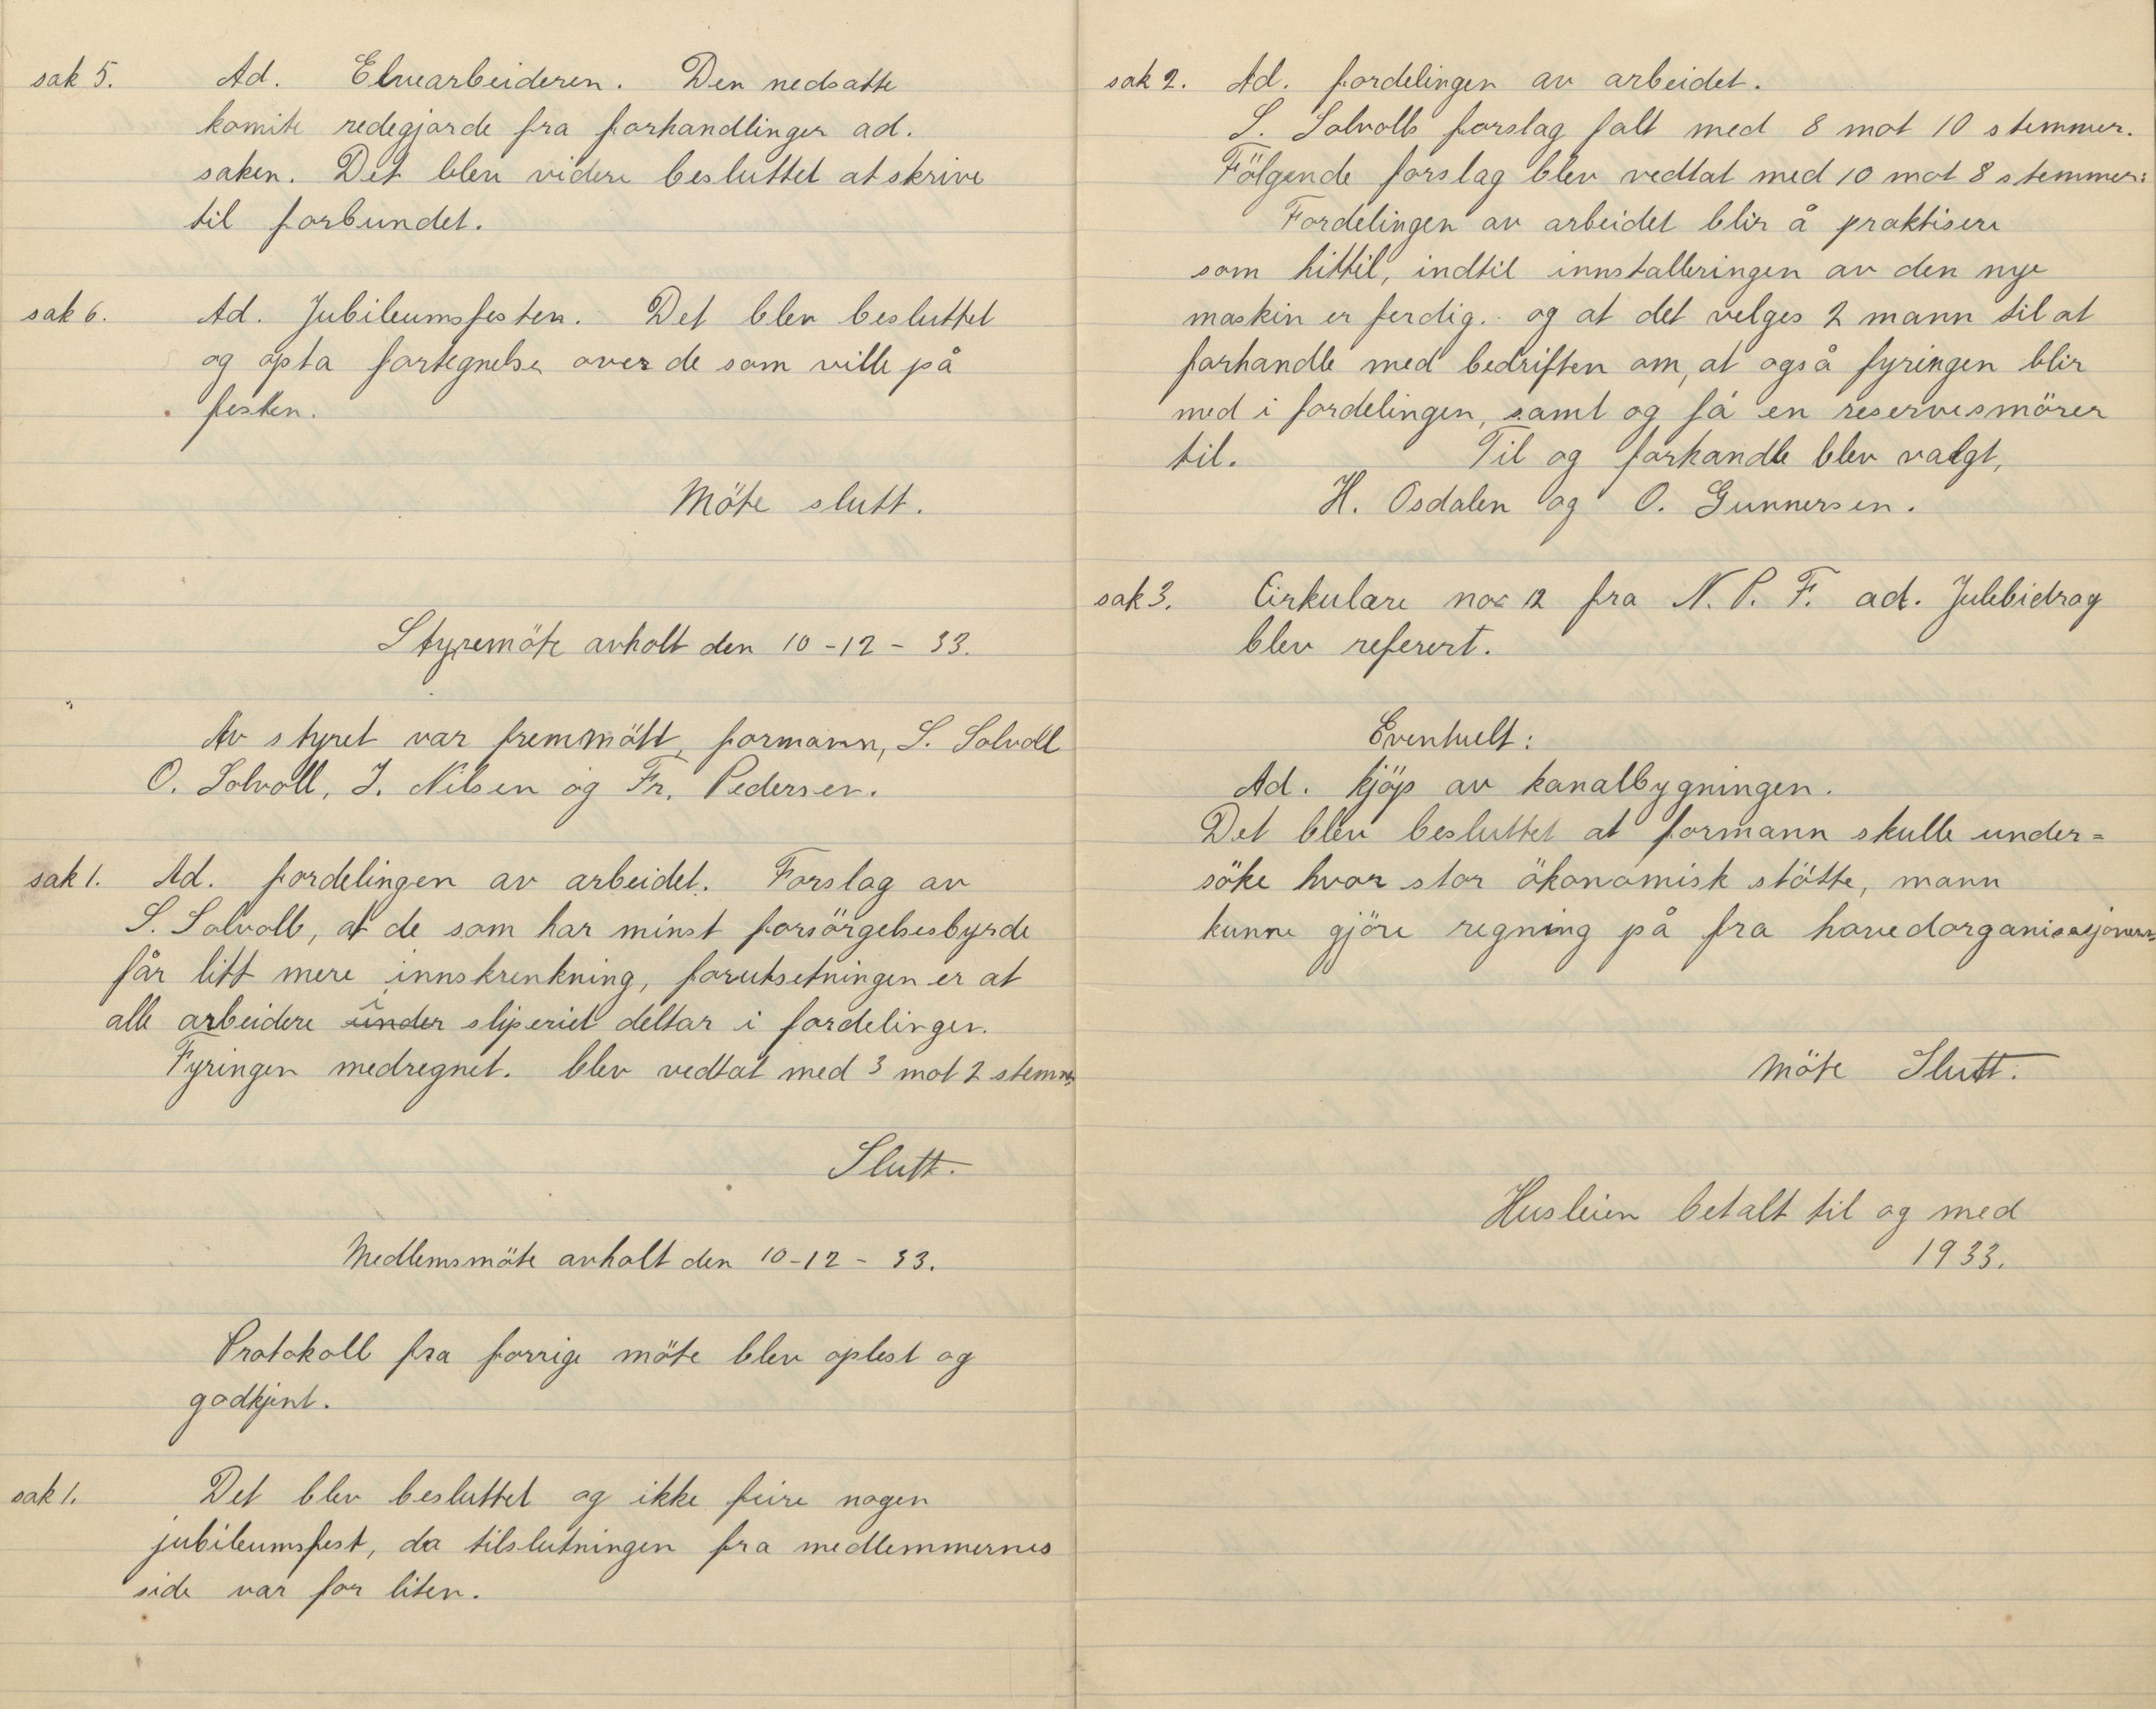 sak 5. Ad. Elvearbeideren. Den nedsatte
komite redegjorde fra forhandlinger ad.
saken. Det blev videre besluttet at skrive
til forbundet.
sak 6. Ad. Jubileumsfesten. Det blev besluttet
og opta fortegnelse over de som ville på
festen.
Möte slutt.
Styremöte avholt den 10-12-33.
Av styret var fremmött, formann, S. Solvoll
O. Solvoll, J. Nilsen og Fr. Pedersen.
sak 1. Ad. fordelingen av arbeidet. Forslag av
S. Solvoll, at de som har minst forsörgelsesbyrde
får litt mere innskrenkning, forutsetningen er at
alle arbeidere i under sliperiet deltar i fordelingen.
Fyringen medregnet. blev vedtat med 3 mot 2 stemm
Slutt.
Medlemsmöte avholt den 10-12-33.
Protokoll fra forrige möte blev oplest og
godkjent.
sak 1. Det blev besluttet og ikke feire nogen
jubileumsfest, da tilslutningen fra medlemmernes
side var for liten.
sak 2. Ad. fordelingen av arbeidet.
S. Solvolls forslag falt med 8 mot 10 stemmer.
Fölgende forslag blev vedtat med 10 mot 8 stemmer:
Fordelingen av arbeidet blir å praktisere
som hittil, indtil innstalleringen av den nye
maskin er ferdig. og at det velges 2 mann til at
forhandle med bedriften om, at også fyringen blir
med i fordelingen, samt og få en reservesmörer
til. Til og forhandle blev valgt,
H. Osdalen og O. Gunnersen.
sak 3. Cirkulære nor 12 fra N. P. F. ad. Julebidrag
blev referert.
Eventuelt:
Ad. kjöp av kanalbygningen.
Det blev besluttet at formann skulle under=
söke hvor stor ökonomisk stötte, mann
kunne gjöre regning på fra hovedorganisasjonen.
Möte Slutt.
Husleien betalt til og med
1933.